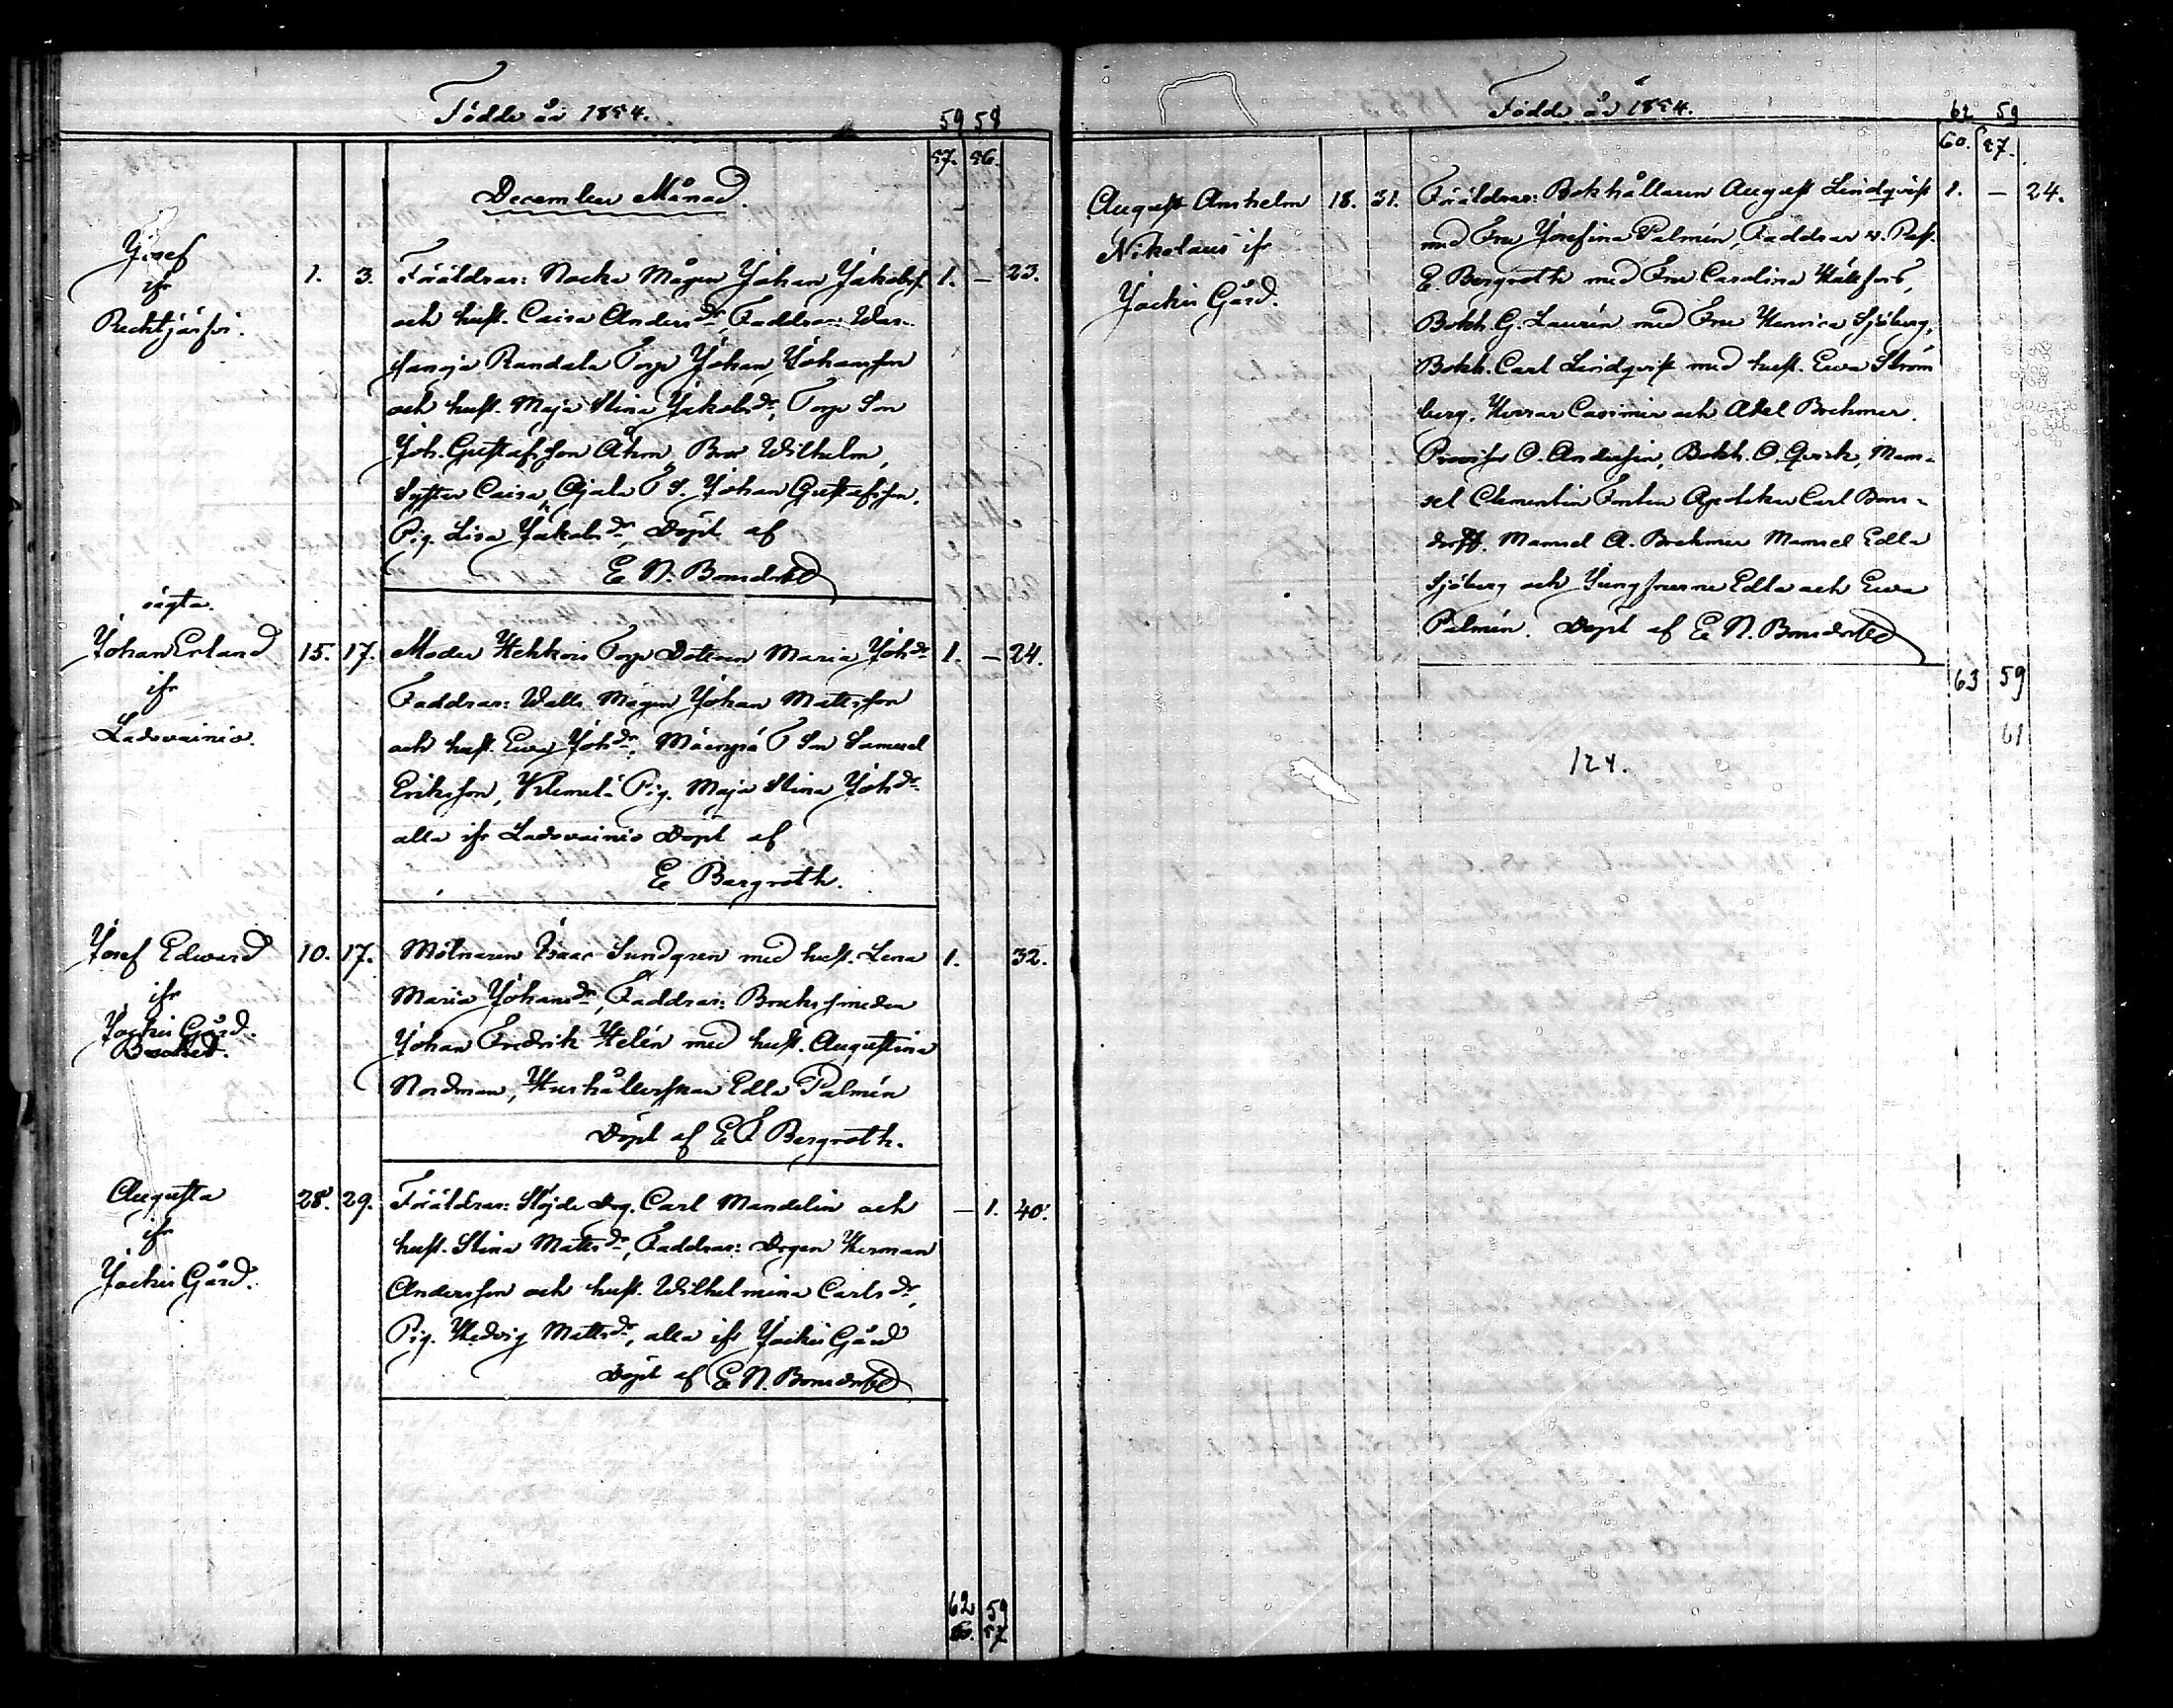 Födde år 1854.
59 58
57. 56.
December Månad.
Josef
ifr
Rechtjärfvi.
1. 3. Föräldrar: Nocka Mågen Johan Jakobss. 1. — 23.
och hust. Caisa Andersdr, Faddrar: War-
sanoja Randala Torp Johan Johansson
och hust. Maja Stina Jakobsdr, Torp Son
Joh. Gustafsson Åhm Bror Wilhelm,
Syster Caisa, Ojala T S. Johan Gustafsson.
Pig. Lisa Jakobsdr Döpt af
E. N. Bonsdorff
oägta.
Johan Erland
ifr
Ladovainio.
15. 17. Moder Hehkois Torp Dotteren Maria Johdr 1. — 24.
Faddrar: Walls Mågen Johan Mattsson
och hust. Eva Johdr, T Son Samuel
Eriksson, Klemelä Pig. Maja Stina Johdr
alla ifr Ladovainio Döpt af
E. Bergroth.
Josef Edvard
ifr
Jockis Gård.
10. 17. Mölnaren Isaac Sundgren med hust. Lena 1. 32.
Maria Johansdr, Faddrar: Bruks smeden
Johan Fredrik Helén med hust. Augustina
Nordman, Hushållerskan Edla Palmén
Döpt af E F Bergroth.
Augusta
ifr
Jockis Gård.
28. 29. Föräldrar: Slöjde Drg. Carl Mandelin och — 1. 40.
hust. Stina Mattsdr, Faddrar: Drgen Herman
Andersson och hust. Wilhelmina Carlsdr,
Pig. Hedvig Mattsdr, alla ifr Jockis Gård
Döpt af E N. Bonsdorff
62 59
60. 57
Födde år 1854.
62 59
60. 57.
August Anshelm
Nikolaus ifr
Jockis Gård.
18. 31. Föräldrar: Bokhållaren August Lindqvist 1. — 24.
med Fru Josefina Palmén, Faddrar v. Past.
E. Bergroth med Fru Carolina Hällfors,
Bokh. G. Laurén med Fru Henrica Sjöberg,
Bokh. Carl Lindqvist med hust. Eva Ström
berg, Herrar Casimir och Axel Brehmer.
Provisor O. Andersin, Bokh. O. Qvick, Mam-
sel Clementin Forstén Apotekar Carl Bons-
dorff. Mamsel A. Brehmer Mamsel Edla
Sjöberg och Jungfruerne Edla och Eva
Palmén. Döpt af E N. Bonsdorff
63 59
61
124.